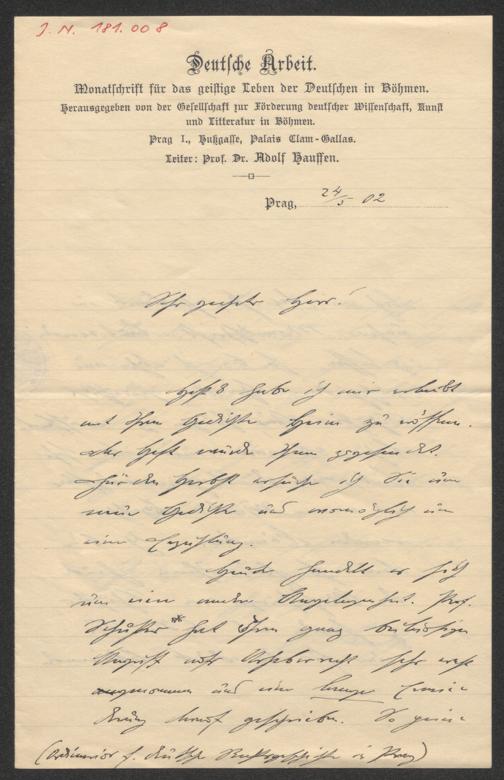 J. N. 181.008
Deutsche Arbeit.
Monatschrift für das geistige Leben der Deutschen in Böhmen.
Herausgegeben von der Gesellschaft zur Förderung deutscher Wissenschaft, Kunst
und Litteratur in Böhmen.
Prag I., Hußgasse, Palais Clam-Gallas.
Leiter: Prof. Dr. Adolf Hauffen.
Prag, 24/5 02
Sehr geehrter Herr!
Heft 8 habe ich mir erlaubt
mit Ihrem Gedichte Heim zu eröffnen.
Das Heft wurde Ihnen zugesendet.
Für den Herbst ersuche ich Sie um
neue Gedichte und womöglich um
eine Erzählung.
Heute handelt es sich
um eine andere Angelegenheit. Prof.
Schuster * hat Ihren ganz
Angriff Urheberrecht sehr
und eine lange Erwie-
derung darauf geschrieben. So
(Ordinarius f. deutsche Rechtsgeschichte in Prag)